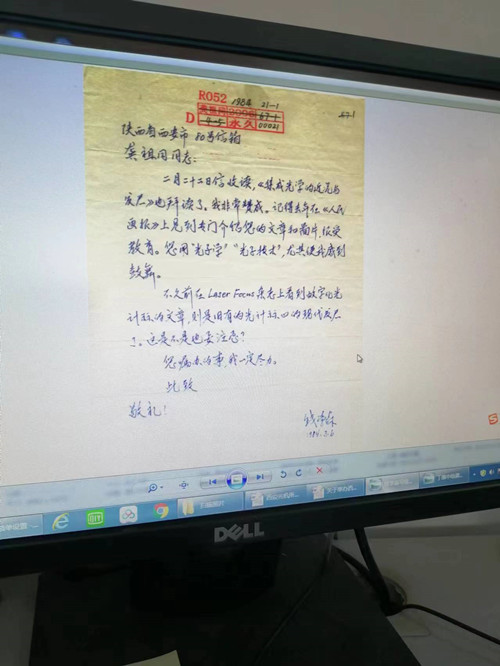 R052 1984 21-1
D 永久 00021
67-1
陕西省西安市80号信箱
龚祖同同志:
二月二十二日信收读,《集成光学的近况与
发展》也拜读了。我非常赞成。记得去年在《人民
画报》上见到专门介绍您的文章和图片,很受
教育。您用“光子学”“光子技术”,尤其使我感到
鼓舞。
不久前在Laser Focus杂志上看到数字化光
计算的文章,则是旧有的光计算的现代发展
了。这是不是也要注意?
您嘱办的事,我一定尽力。
此致
敬礼!
钱学森
1984.3.6
DELL